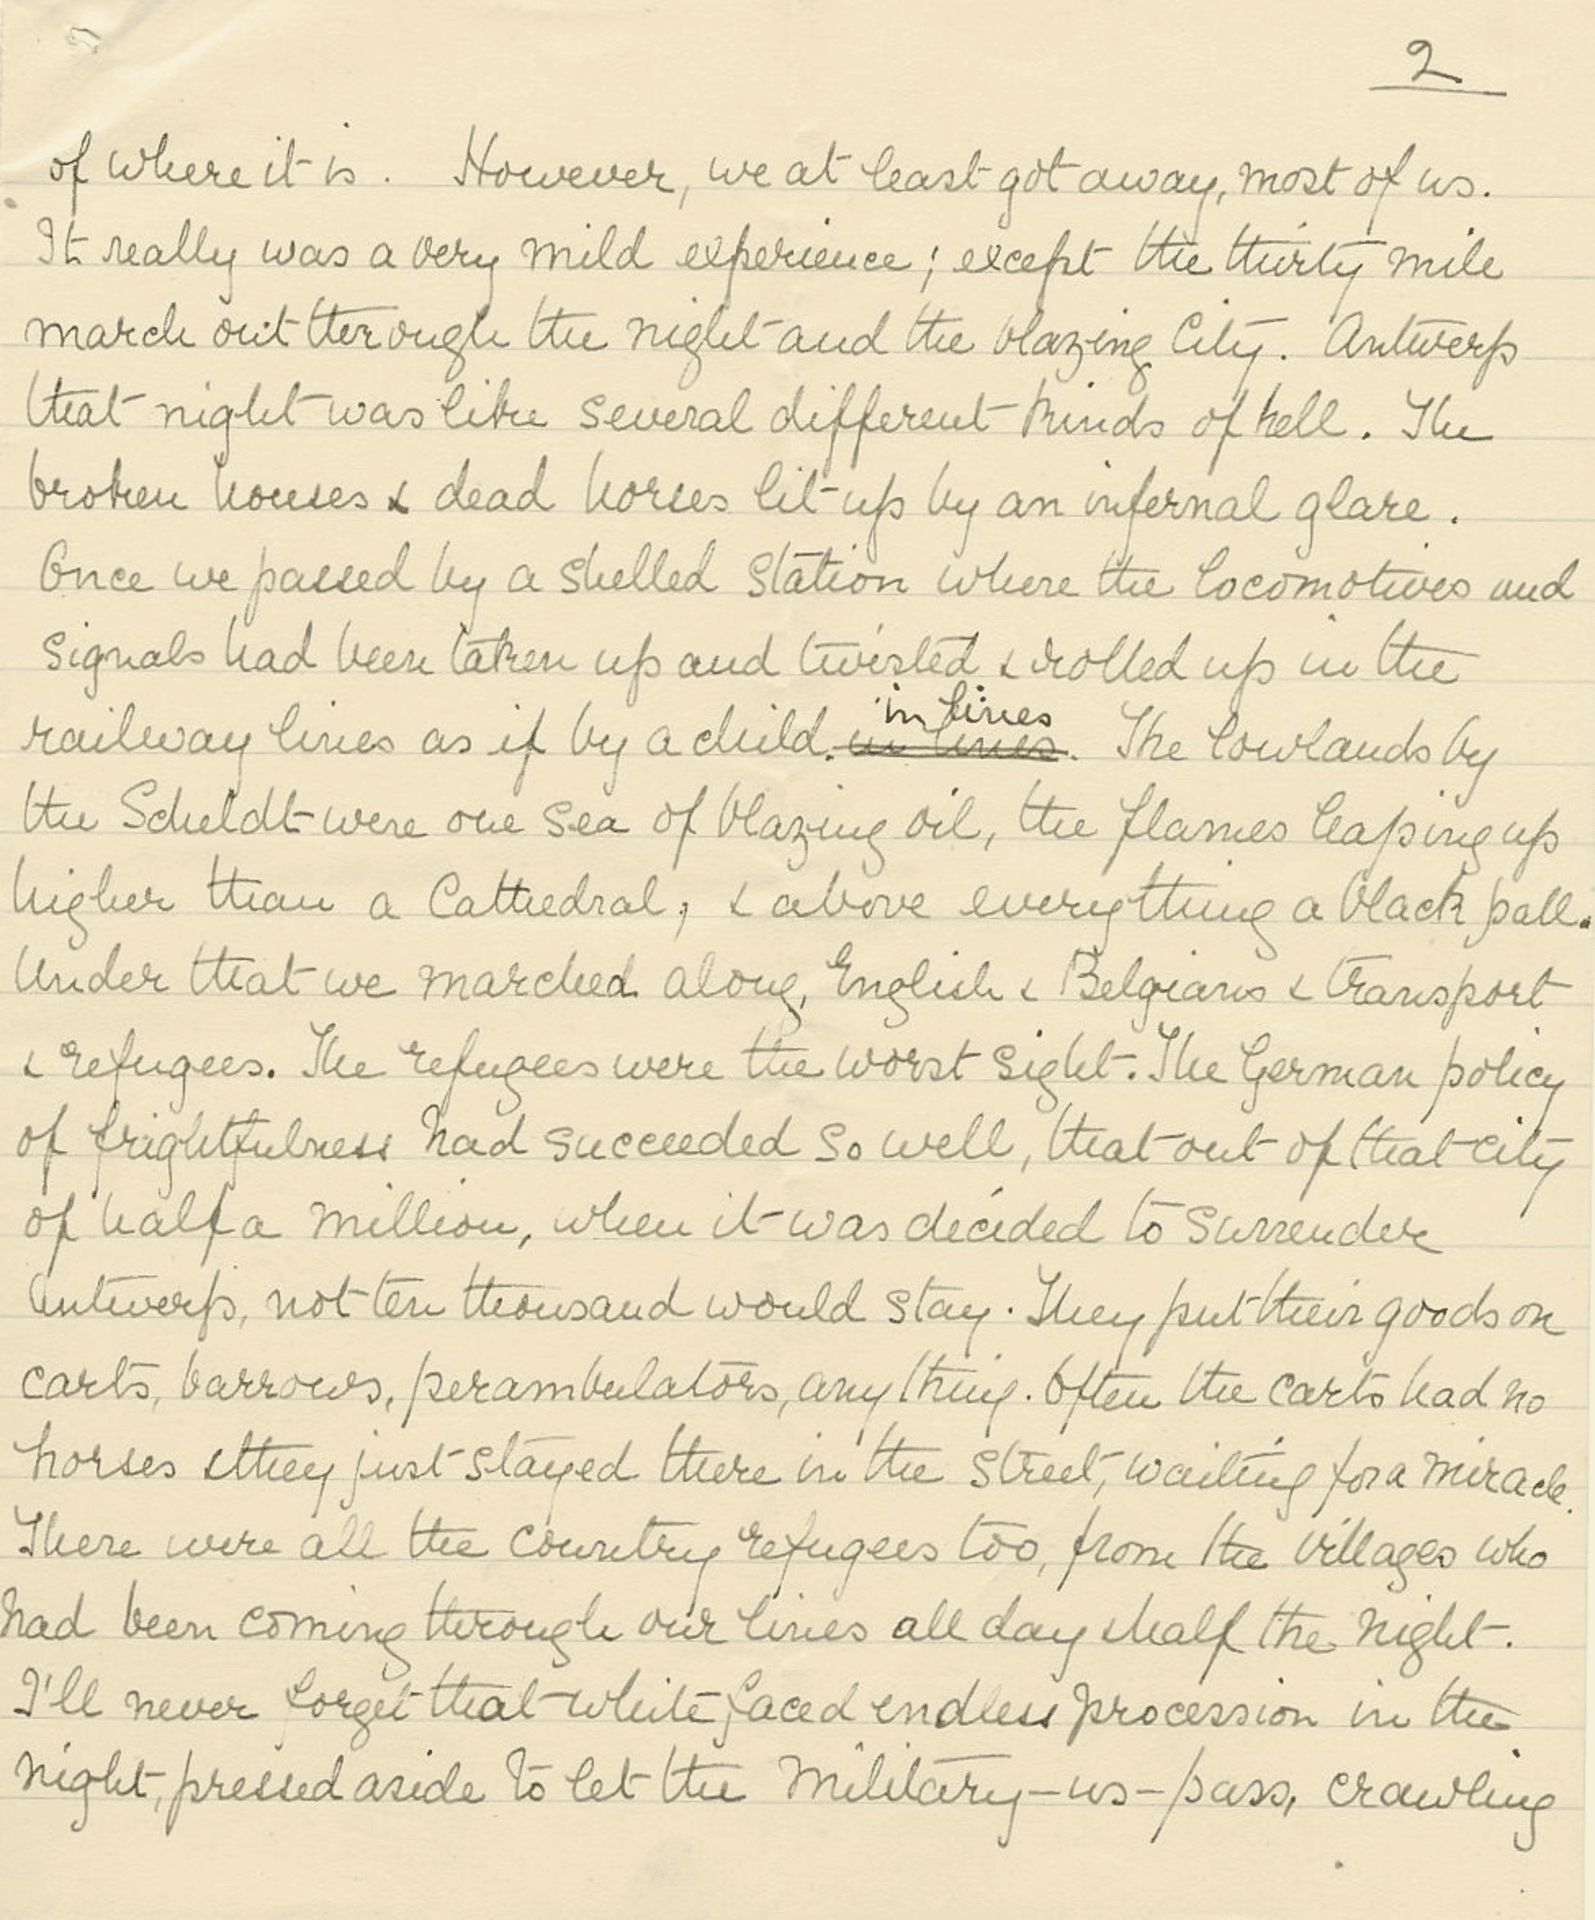 2
of where it is. However, we at least got away, most of us.
It really was a very mild experience; except the thirty mile
march out through the night and the blazing City. Antwerp
that night was like several different kinds of hell. The
broken houses & dead horses lit up by an infernal glare.
Once we passed by a shelled station where the locomotives and
signals had been taken up and twisted & rolled up in the
in lines
railway lines as if by a child. in lines. The lowlands by
the Scheldt were one sea of blazing oil, the flames leaping up
higher than a Cathedral; & above everything a black pall.
Under that we marched along, English & Belgians & transport
& refugees. The refugees were the worst sight. The German policy
of frightfulness had succeeded so well, that out of that city
of half a million, when it was decided to surrender
Antwerp, not ten thousand would stay. They put their goods on
carts, barrows, perambulators, anything. Often the carts had no
horses & they just stayed there in the street, waiting for a miracle.
There were all the country refugees too, from the villages who
had been coming through our lines all day & half the night.
I'll never forget that white faced endless procession in the
night, pressed aside to let the military—us—pass, crawling